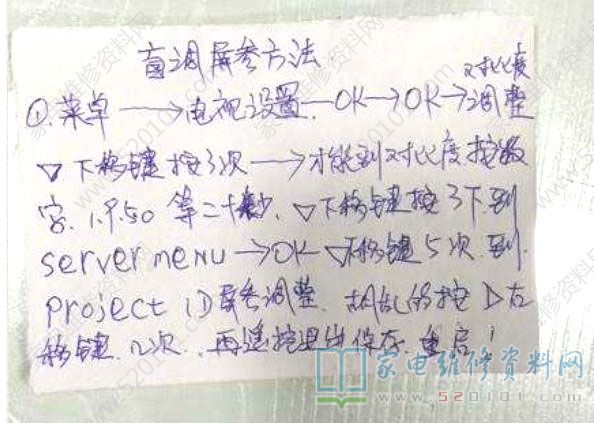 盲调屏参方法
对比度
①.菜单→电视设置→OK→OK→调整
▽下移键按3次→才能到对比度按数
字.1.9.50等二十秒.▽下移键按3下.到
server menu→OK▽下移键5次.到
project iD屏参调整.胡乱的按▷右
移键.几次.再遥控退出保存.重启!
家电维修资料网
www.520101.com